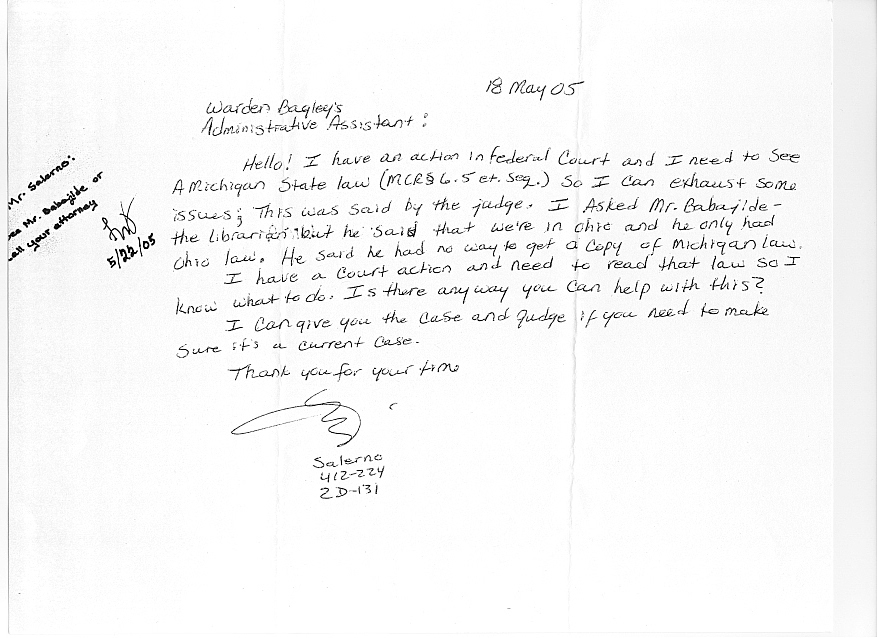 18 May 05
Warden Bagley's
Administrative Assistant:
Hello! I have an action in federal Court and I need to see
A Michigan State law (MCR§ 6.5 et. seq.) So I can exhaust some
issues; This was said by the judge. I Asked Mr. Babajide-
the librarian but he said that we're in ohio and he only had
Ohio law. He said he had no way to get a copy of Michigan law.
I have a Court action and need to read that law so I
know what to do. Is there anyway you can help with this?
I can give you the case and Judge if you need to make
sure it's a current case.
Thank you for your time
Salerno
412-224
2D-131
Mr. Salerno:
see Mr. Babajide or
call your attorney
5/22/05